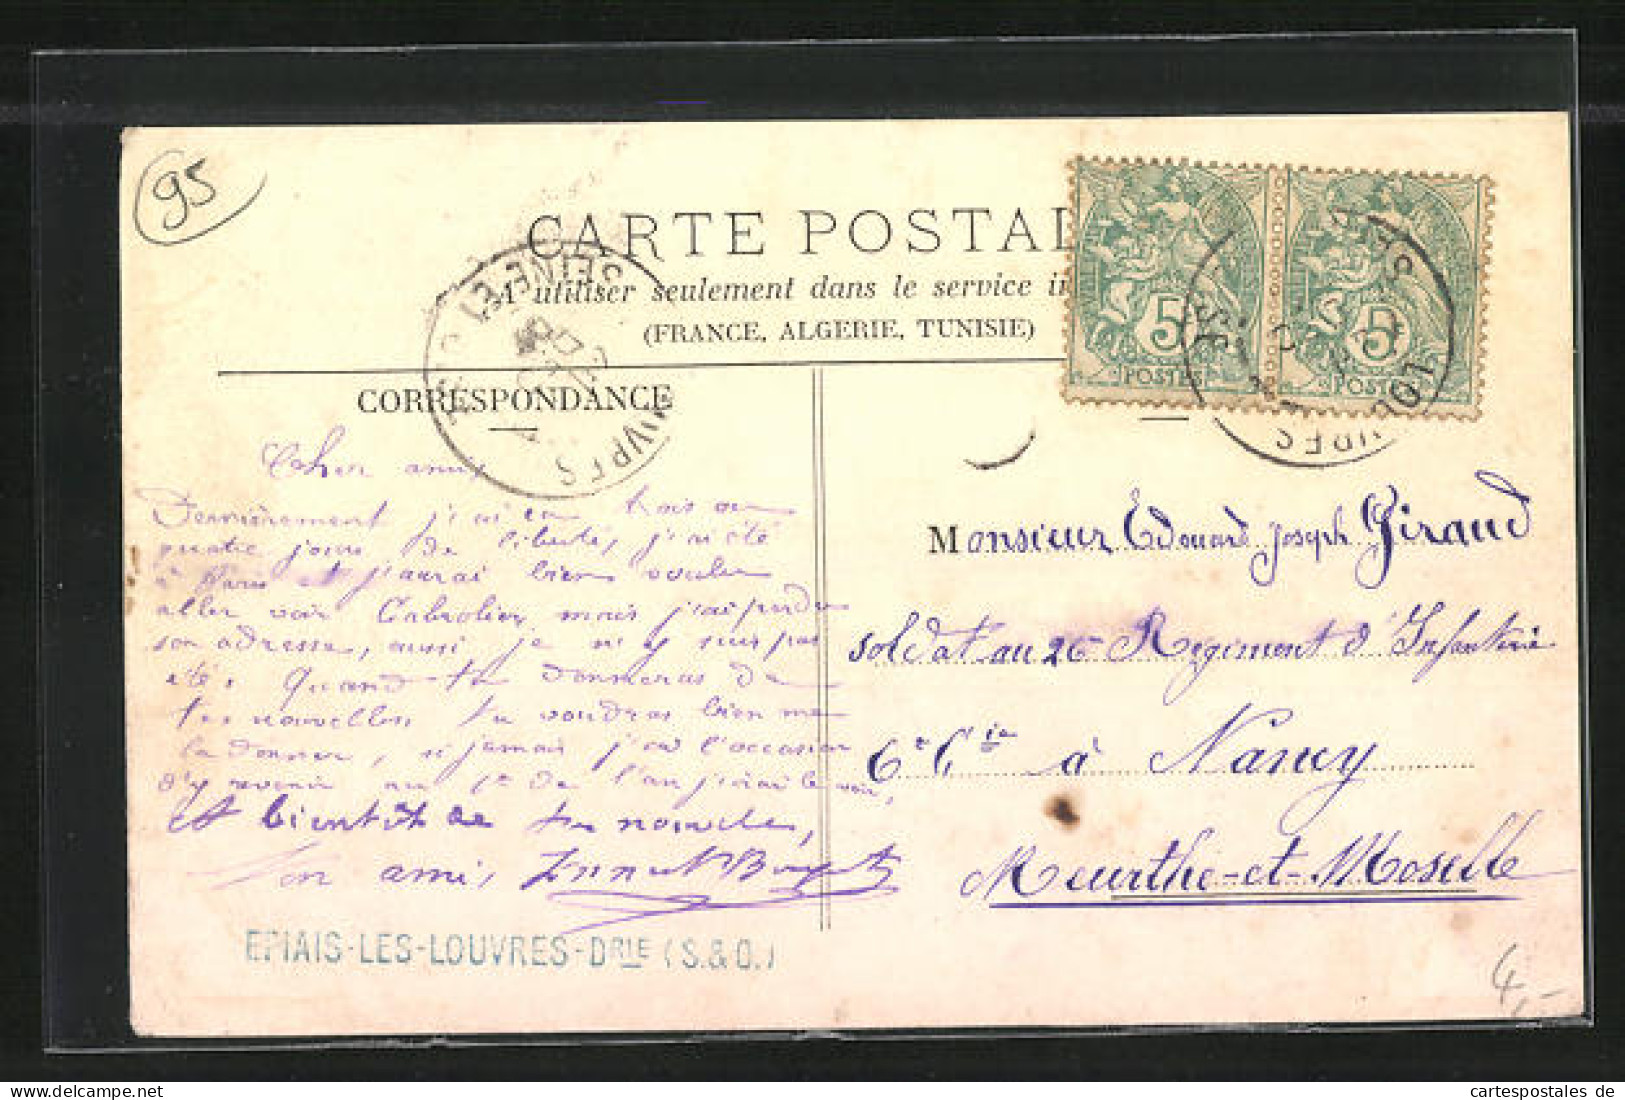 95
CARTE POSTAL
A utiliser seulement dans le service i
(FRANCE, ALGERIE, TUNISIE)
CORRESPONDANCE
5 5
POSTES POSTES
LOUVRES
SEINE-ET-OISE
Cher ami,
Dernièrement j'ai eu trois ou
quatre jours de liberté, j'ai été
à Paris et j'aurai bien voulu
aller voir Cabrolier mais j'ai perdu
son adresse, aussi je n'y suis pas
été. Quand tu donneras de
tes nouvelles tu voudras bien me
la donner, si jamais j'ai l'occasion
d'y revenir au 1er de l'an j'irai le voir,
A bientôt de tes nouvelles,
Ton ami,
EPIAIS-LES-LOUVRES-DRIE (S.&O.)
Monsieur Edouard Joseph Giraud
soldat au 26e Regiment d'Infanterie
6e Cie à Nancy
Meurthe-et-Moselle
4,-
cartespostales de